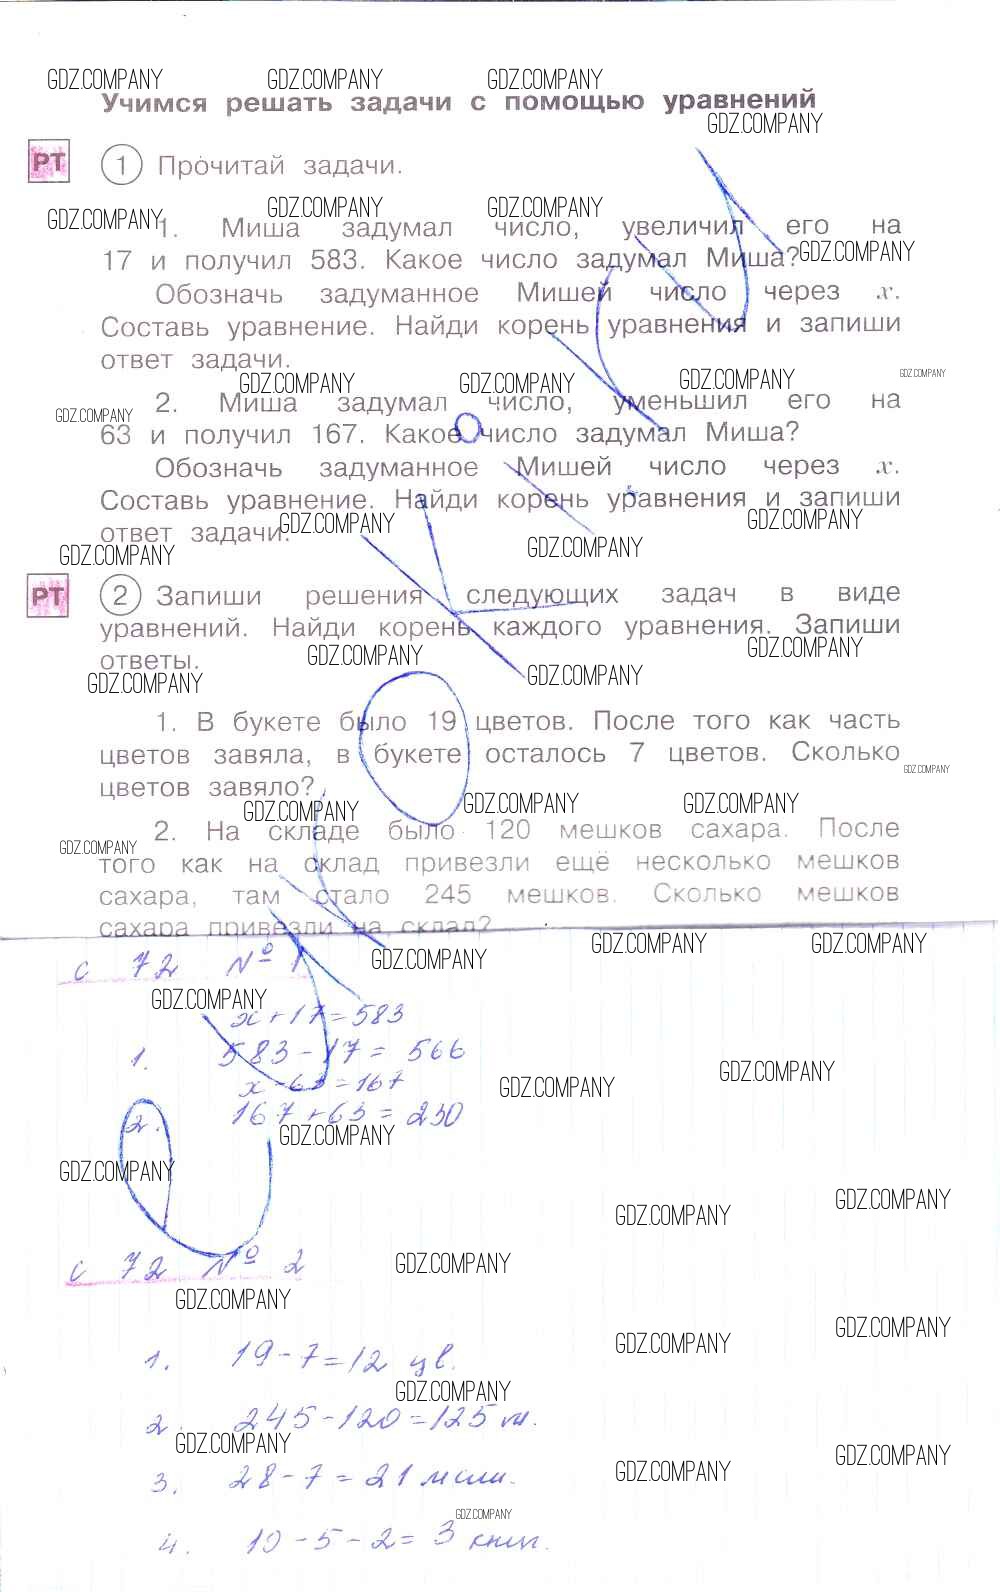 GDZ.COMPANY GDZ.COMPANY GDZ.COMPANY
Учимся решать задачи с помощью уравнений
GDZ.COMPANY
РТ 1 Прочитай задачи.
GDZ.COMPANY GDZ.COMPANY GDZ.COMPANY
1. Миша задумал число, увеличил его на
17 и получил 583. Какое число задумал Миша?
GDZ.COMPANY
Обозначь задуманное Мишей число через x.
Составь уравнение. Найди корень уравнения и запиши
ответ задачи.
GDZ.COMPANY GDZ.COMPANY GDZ.COMPANY GDZ.COMPANY
2. Миша задумал число, уменьшил его на
GDZ.COMPANY
63 и получил 167. Какое число задумал Миша?
Обозначь задуманное Мишей число через x.
Составь уравнение. Найди корень уравнения и запиши
ответ задачи.
GDZ.COMPANY GDZ.COMPANY
GDZ.COMPANY GDZ.COMPANY
РТ 2 Запиши решения следующих задач в виде
уравнений. Найди корень каждого уравнения. Запиши
ответы.
GDZ.COMPANY GDZ.COMPANY
GDZ.COMPANY GDZ.COMPANY
1. В букете было 19 цветов. После того как часть
цветов завяла, в букете осталось 7 цветов. Сколько
GDZ.COMPANY
цветов завяло?
GDZ.COMPANY GDZ.COMPANY GDZ.COMPANY
2. На складе было 120 мешков сахара. После
GDZ.COMPANY
того как на склад привезли ещё несколько мешков
сахара, там стало 245 мешков. Сколько мешков
сахара привезли на склад?
GDZ.COMPANY GDZ.COMPANY
с 72 № 1
GDZ.COMPANY
GDZ.COMPANY
x+17=583
1. 583-17= 566
x-63=167
GDZ.COMPANY GDZ.COMPANY
2. 167+63= 230
GDZ.COMPANY
GDZ.COMPANY
GDZ.COMPANY GDZ.COMPANY
с 72 № 2
GDZ.COMPANY
GDZ.COMPANY
GDZ.COMPANY GDZ.COMPANY
1. 19-7=12 цв.
GDZ.COMPANY
2. 245-120=125 м.
GDZ.COMPANY
GDZ.COMPANY GDZ.COMPANY
3. 28-7=21
GDZ.COMPANY
4. 10-5-2= 3 книг.